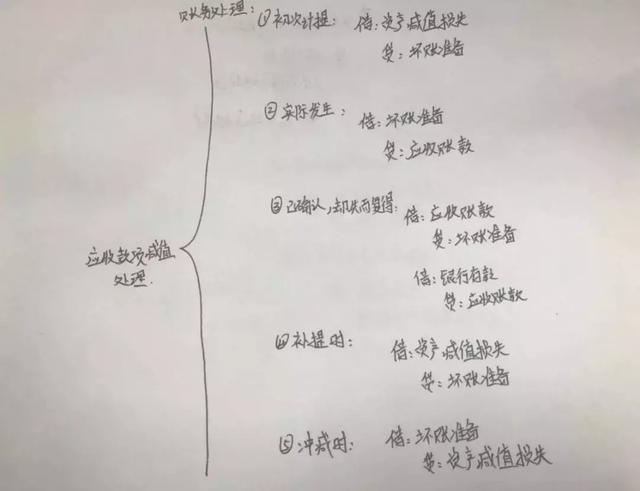 账务处理：①初次计提： 借：资产减值损失
贷：坏账准备
②实际发生： 借：坏账准备
贷：应收账款
③已确认，却失而复得： 借：应收账款
贷：坏账准备
借：银行存款
贷：应收账款
应收款项减值
处理.
④补提时： 借：资产减值损失
贷：坏账准备
⑤冲减时： 借：坏账准备
贷：资产减值损失